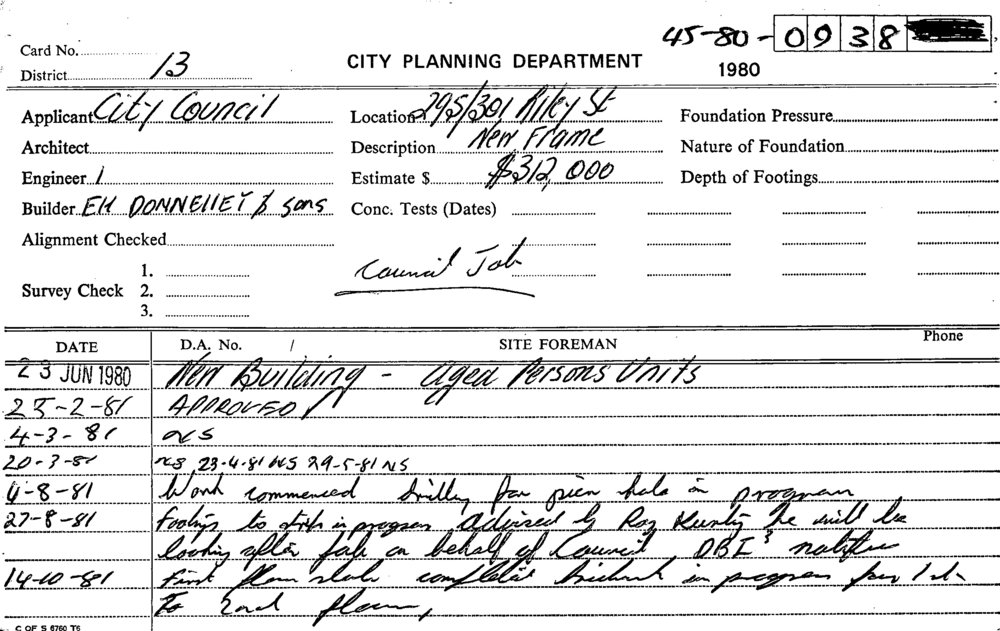 45-80-0938
Card No.
CITY PLANNING DEPARTMENT
1980
District 13
Applicant City Council
Location 295/301 Riley St
Foundation Pressure
Architect
Description New Frame
Nature of Foundation
Engineer /
Estimate $ $312,000
Depth of Footings
Builder EH DONNELLEY & Sons
Conc. Tests (Dates)
Alignment Checked
Council Job
Survey Check
1.
2.
3.
DATE
D.A. No. /
SITE FOREMAN
Phone
23 JUN 1980 New Building - Aged Persons Units
25-2-81 APPROVED
4-3-81 NS
20-3-81 NS 23-4-81 NS 29-5-81 NS
4-8-81 Work commenced drilling for pier holes in program
27-8-81 Footings to in progress advised by Ray he will be
looking after job on behalf of Council, DBI notified
14-10-81 First floor slab completed brickwork in progress from 1st
To 2nd floor,
C OF S 6760 T6